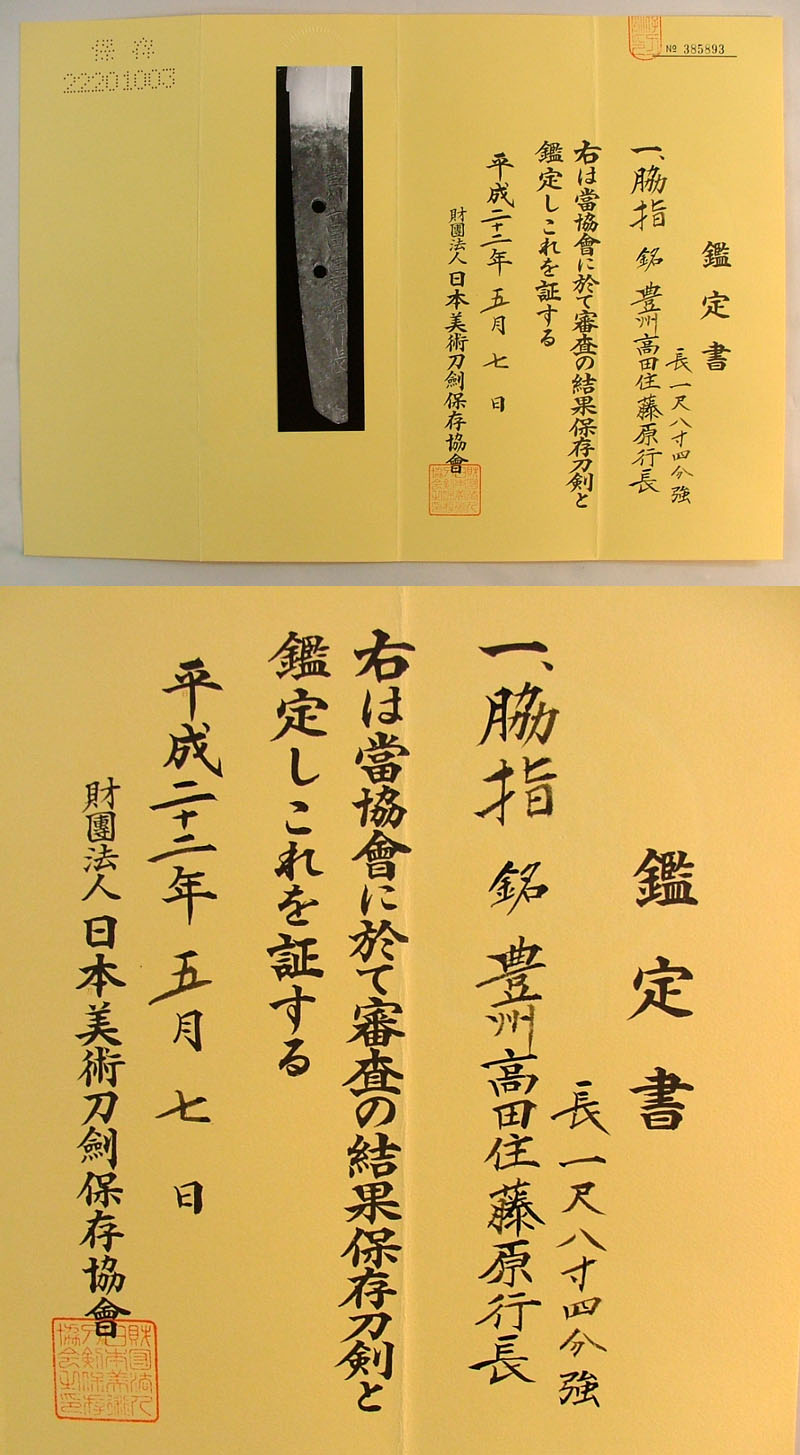 保存
22201003
№ 385893
鑑定書
長一尺八寸四分強
一、脇指 銘 豊州高田住藤原行長
右は當協會に於て審査の結果保存刀剣と
鑑定しこれを証する
平成二十二年 五月 七日
財團法人 日本美術刀劍保存協會
鑑定書
長一尺八寸四分強
一、脇指 銘 豊州高田住藤原行長
右は當協會に於て審査の結果保存刀剣と
鑑定しこれを証する
平成二十二年 五月 七日
財團法人 日本美術刀劍保存協會